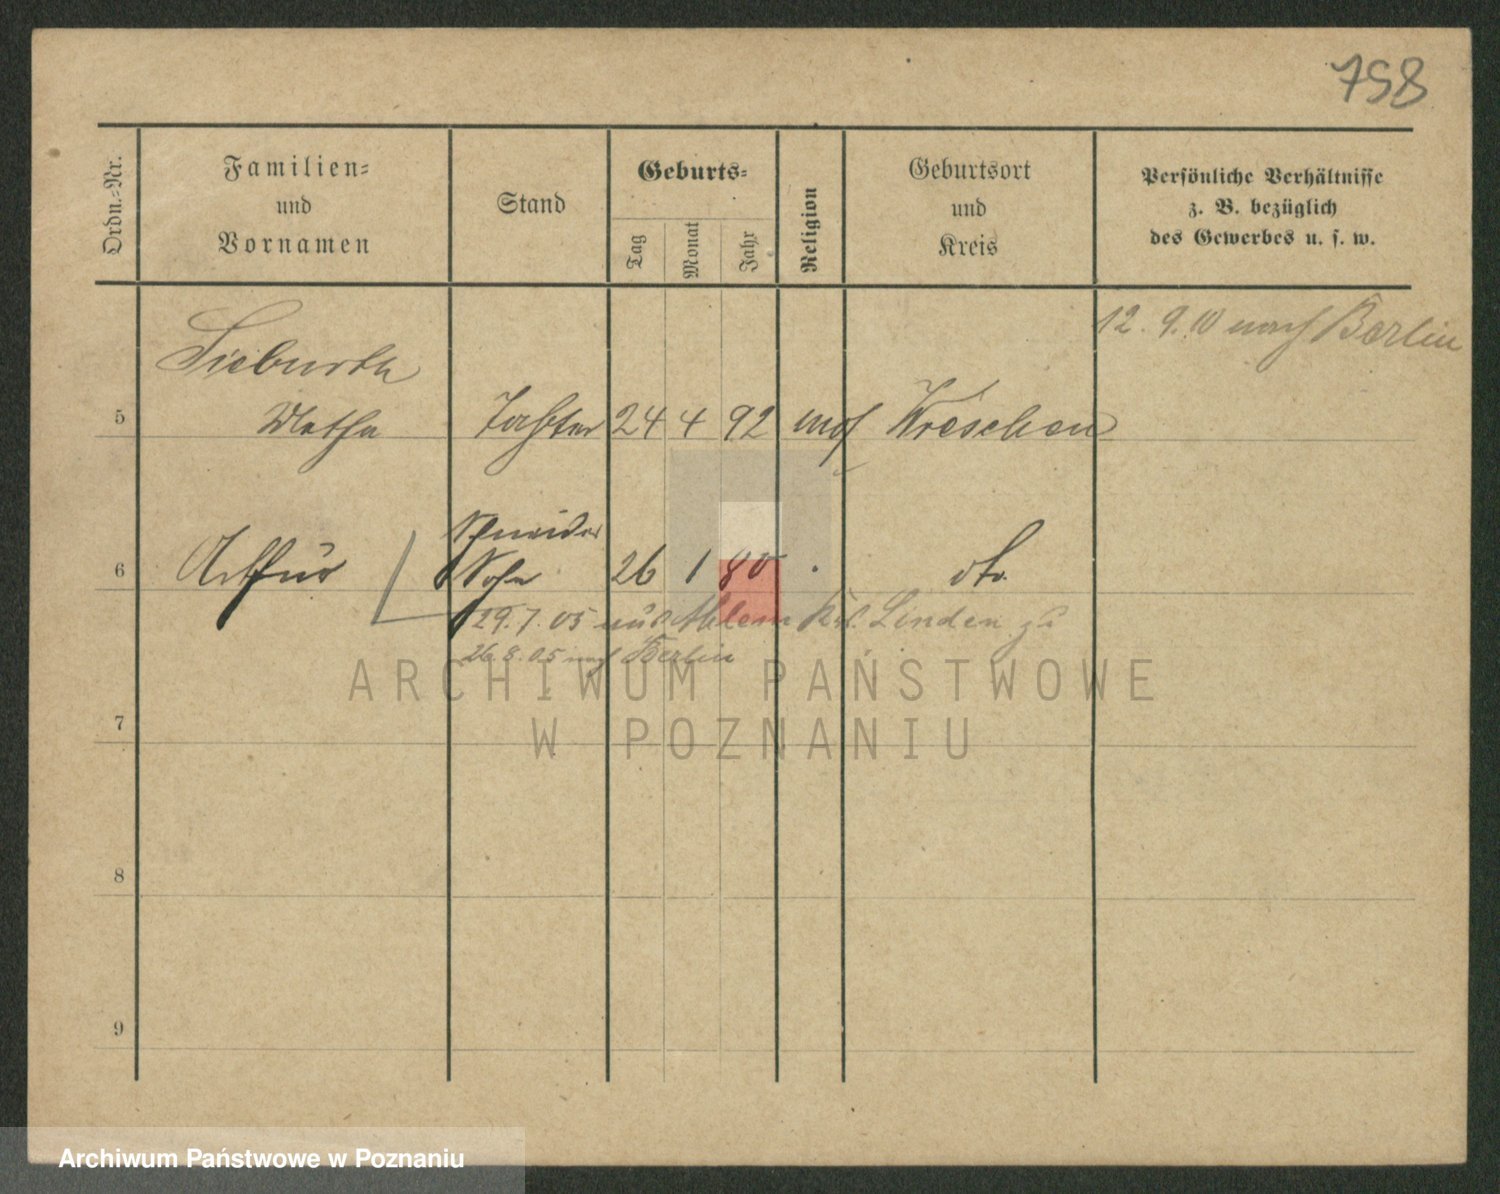 758
Ordn.-Nr.
Familien-
und
Vornamen
Stand
Geburts-
Tag
Monat
Jahr
Religion
Geburtsort
und
Kreis
Persönliche Verhältnisse
z. B. bezüglich
des Gewerbes u. s. w.
12. 9. 10 nach Berlin
Sieburth
5 Tochter 24 4 92 mos Wreschen
Schneider
6 Arthur Sohn 26 1 80 . dto.
29. 7. 05 aus Ahlem Krs. Linden zu
26. 8. 05 nach Berlin
ARCHIWUM PAŃSTWOWE
W POZNANIU
7
8
9
Archiwum Państwowe w Poznaniu